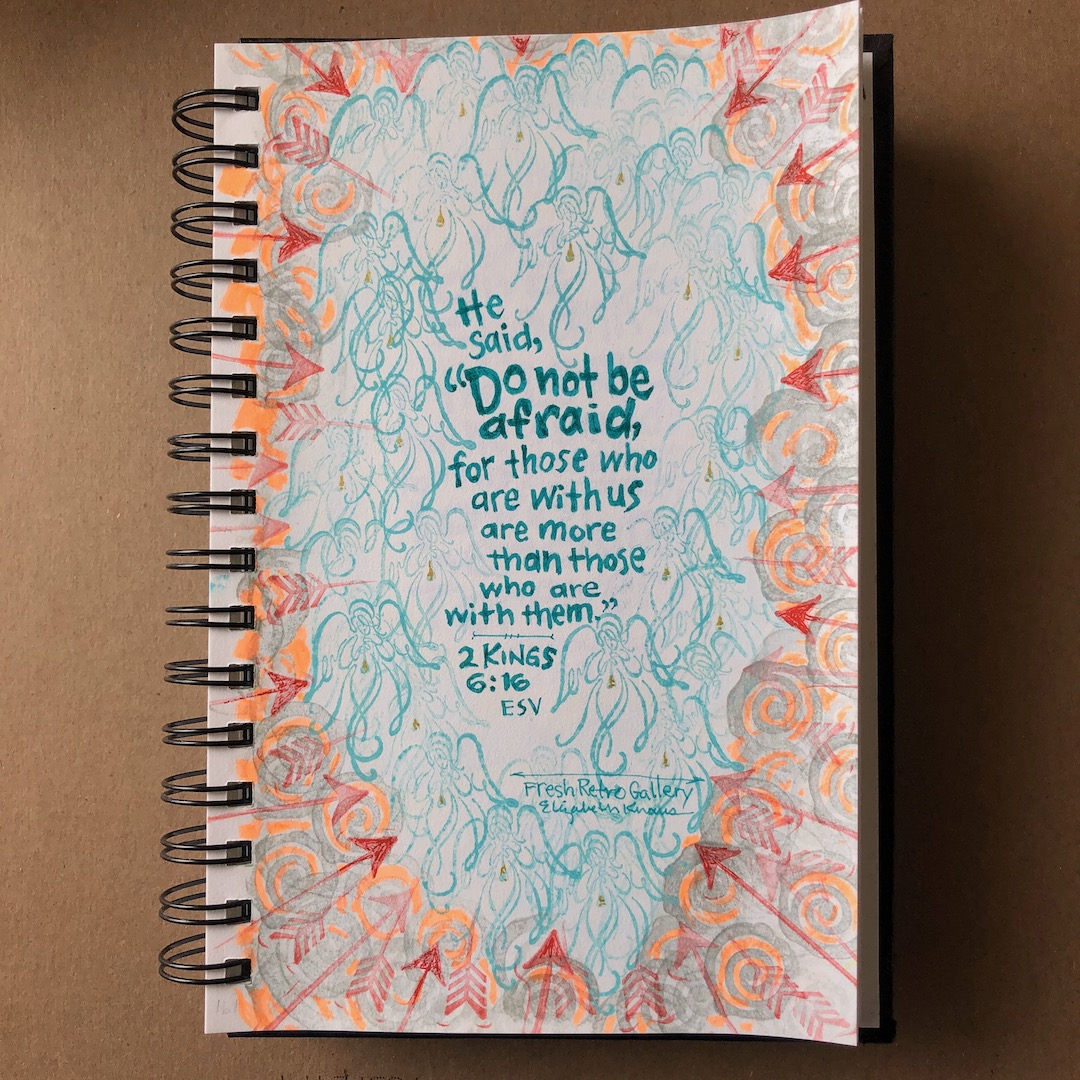 He
said,
“Do not be
afraid,
for those who
are with us
are more
than those
who are
with them.”
2 KINGS
6:16
ESV
Fresh Retro Gallery
Elizabeth Knaus